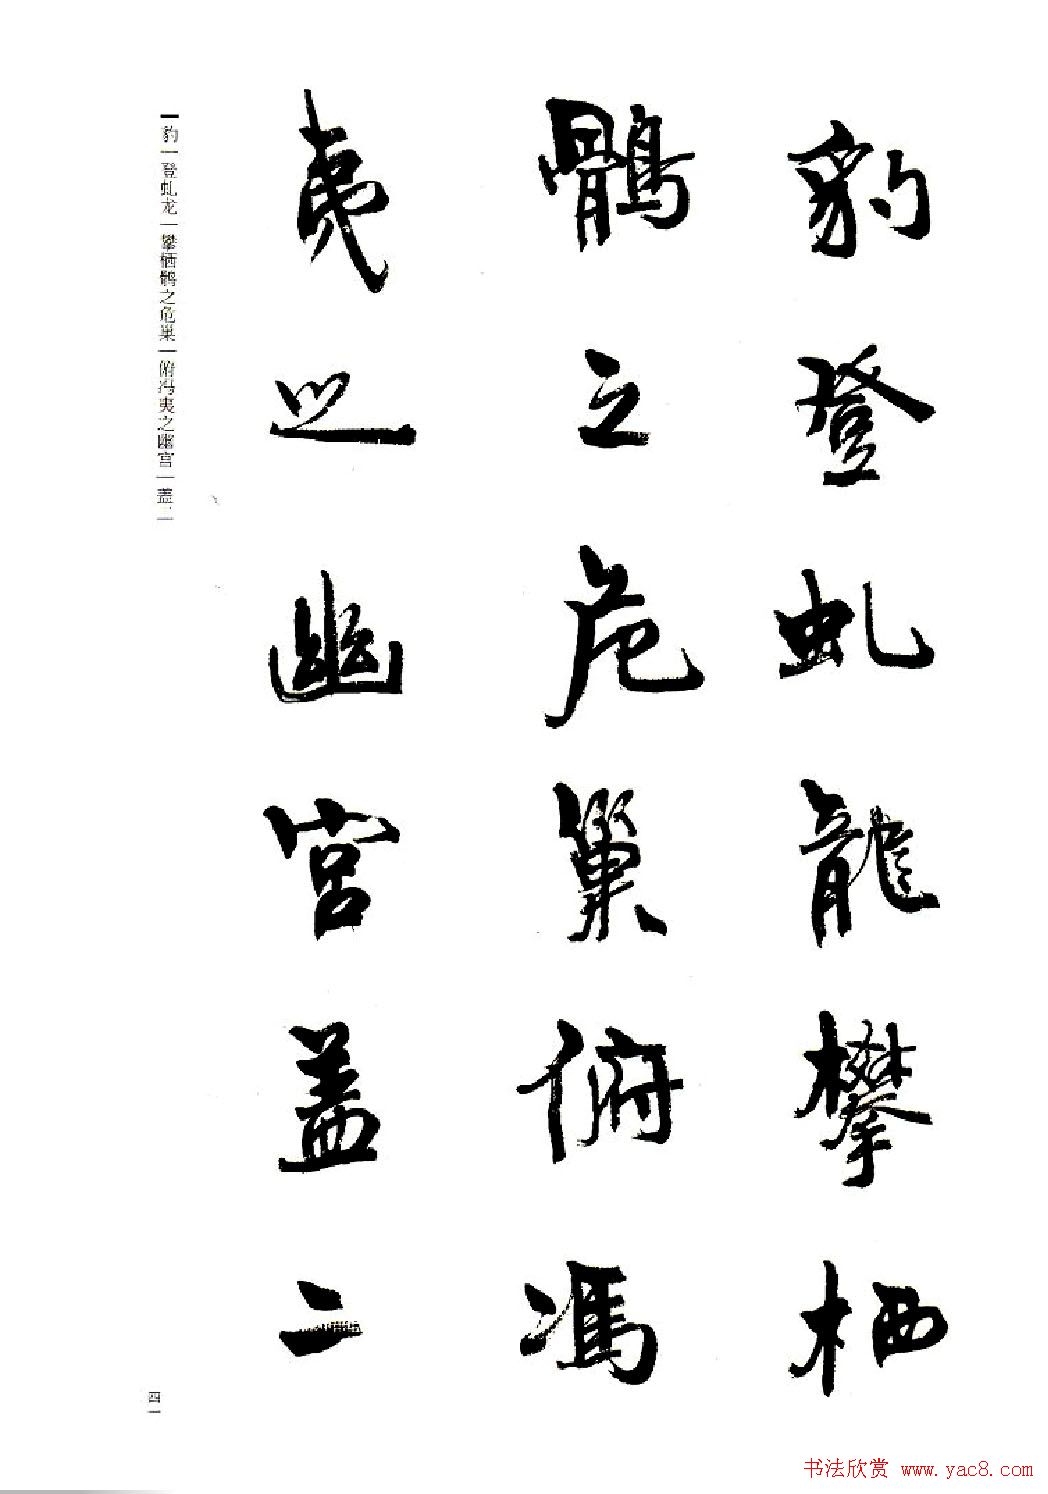 豹登虬龍攀栖
鶻之危巢俯馮
夷之幽宮盖二
豹｜登虬龙｜攀栖鹘之危巢｜俯冯夷之幽宫｜盖二
四一
书法欣赏 www.yac8.com